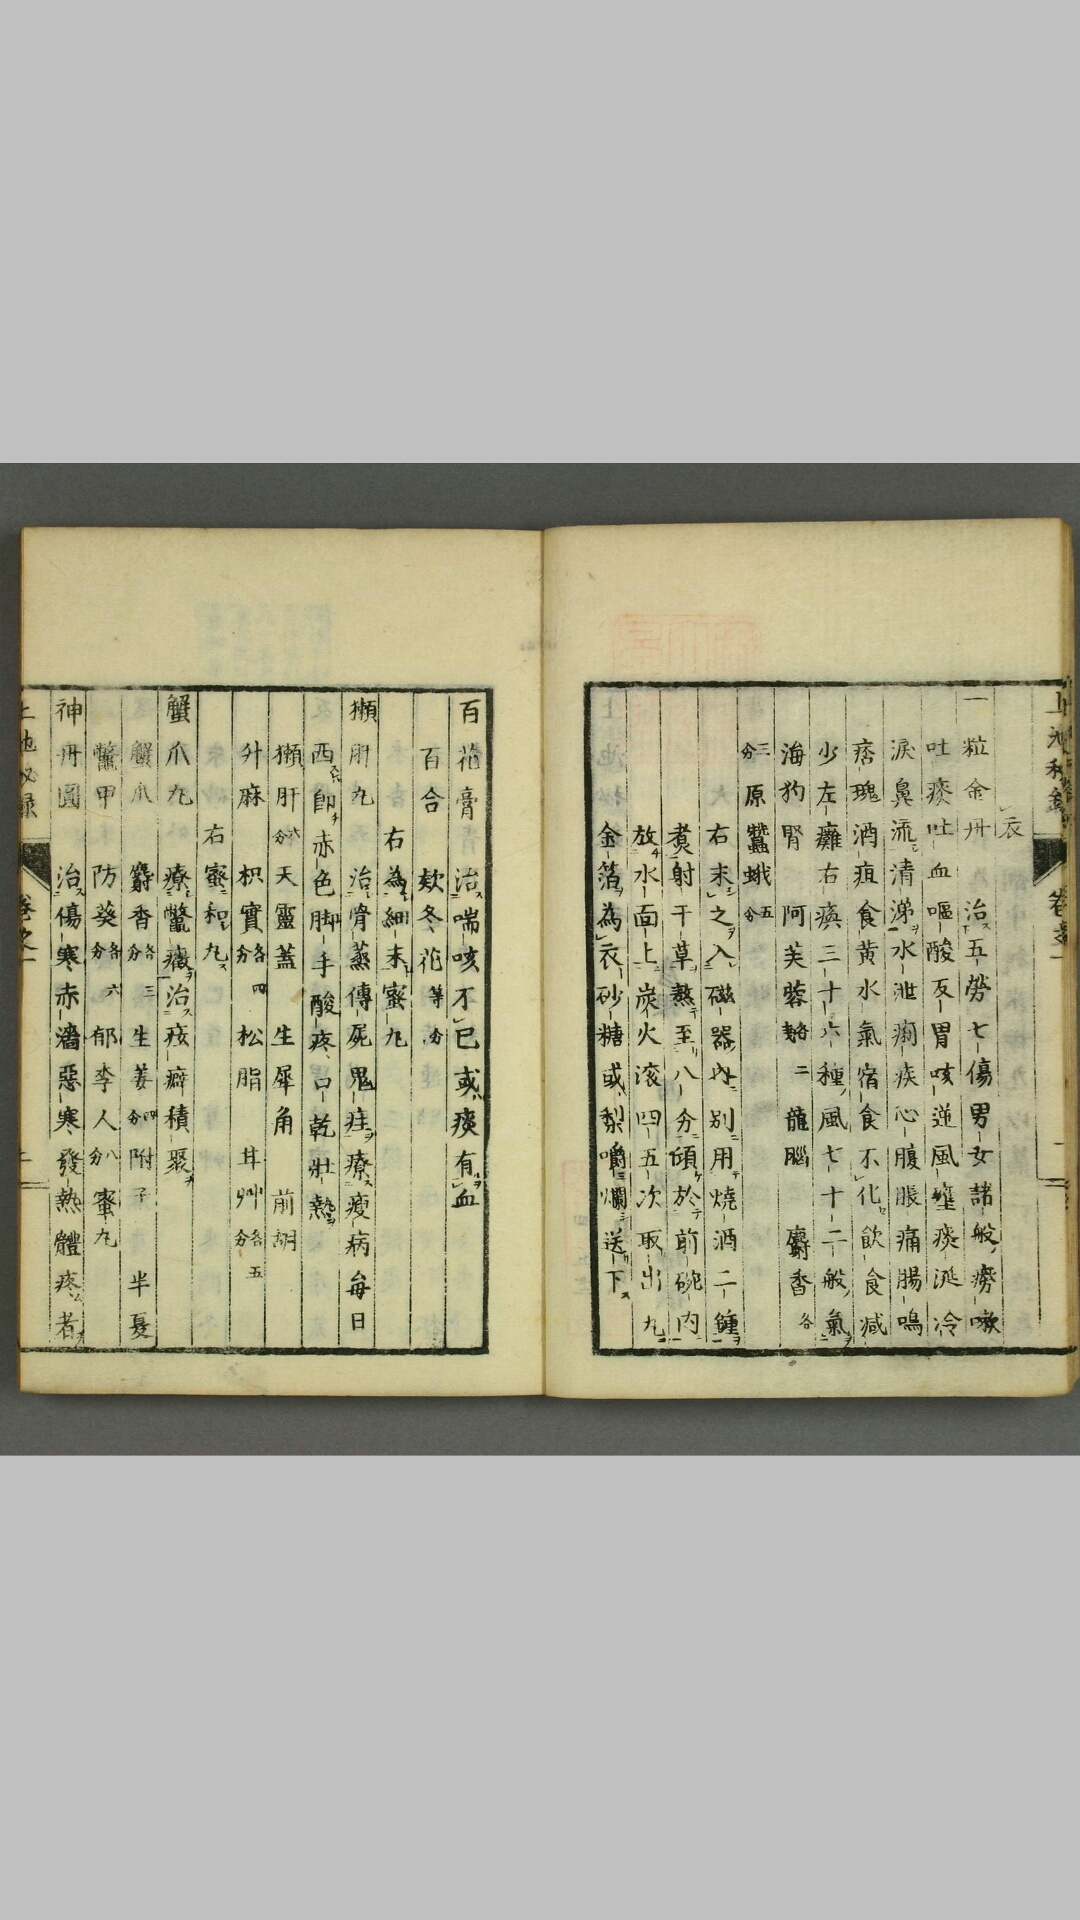 上池秘録 卷之一
衣
一粒金丹 治五勞七傷男女諸般癆嗽
吐痰吐血嘔酸反胃咳逆風壅痰涎冷
淚鼻流清涕水泄痢疾心腹脹痛腸鳴
痞塊酒疸食黄水氣宿食不化飲食減
少左癱右瘓三十六種風七十二般氣
海狗腎 阿芙蓉 二 龍腦 麝香各
三分 原蠶蛾五分
右末之入磁器內別用燒酒二鍾
煮射干草熬至八分傾於前碗内
放水面上炭火滚四五次取出丸
金箔為衣砂糖或梨嚼爛送下
百花膏 治喘咳不已或痰有血
百合 欵冬花等分
右為細末蜜丸
獺肝丸 治骨蒸傳屍鬼疰療瘦病每日
西即赤色脚手酸疼口乾壯熱
獺肝六分 天靈蓋 生犀角 前胡
升麻 枳實各四分 松脂 甘艸各五分
右蜜和丸
蟹爪丸 療鼈癥治痃癖積聚
蟹爪 麝香各三分 生姜四分 附子 半夏
鼈甲 防葵各六分 郁李人八分 蜜丸
神丹圓 治傷寒赤濇惡寒發熱體疼者
上池秘録 卷之一